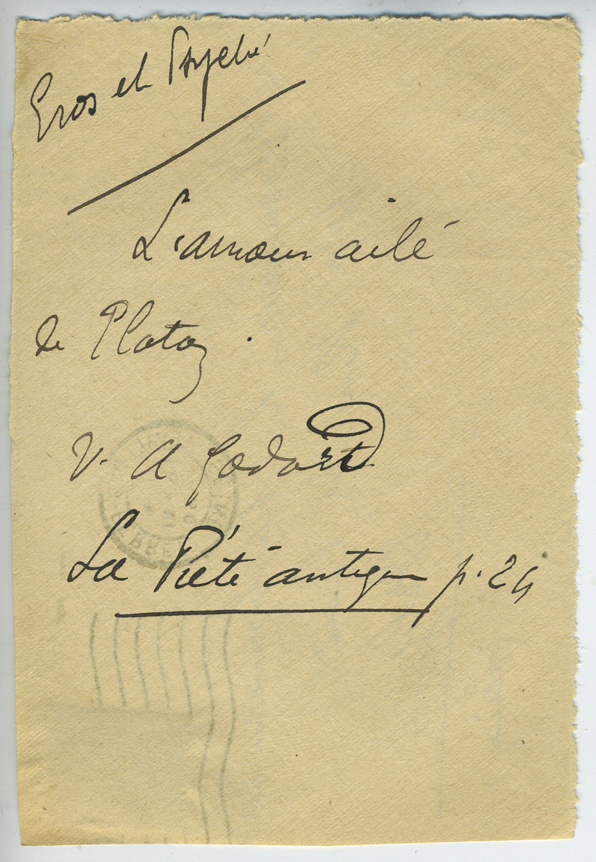 Eros et Psyché
L'amour ailé
de Platon.
V. A Godard
La Piété antique p. 24